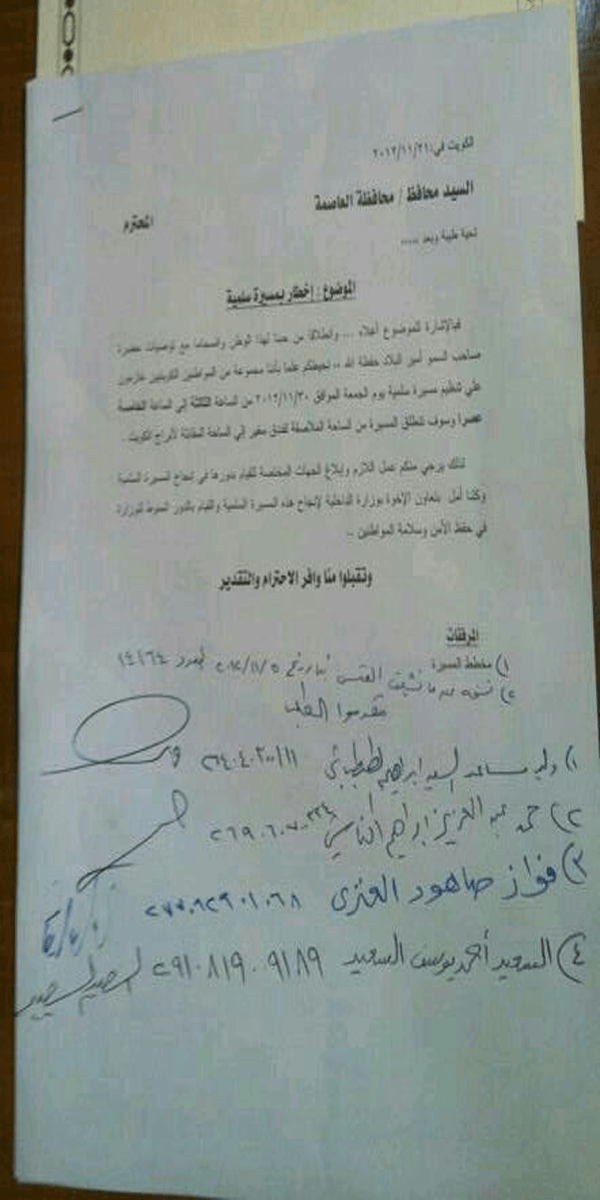 الكويت في: ٢٠١٢/١١/٢١
السيد محافظ / محافظة العاصمة
المحترم
تحية طيبة وبعد .....
الموضوع : إخطار بمسيرة سلمية
فبالإشارة للموضوع أعلاه ... وانطلاقا من حبنا لهذا الوطن وانسجاما مع توصيات حضرة
صاحب السمو أمير البلاد حفظه الله .. نحيطكم علما بأننا مجموعة من المواطنين الكويتيين عازمون
على تنظيم مسيرة سلمية يوم الجمعة الموافق ٢٠١٢/١١/٣٠ من الساعة الثالثة إلى الساعة الخامسة
عصرا وسوف تنطلق المسيرة من الساحة الملاصقة لفندق سفير إلى الساحة المقابلة لأبراج الكويت .
لذلك يرجى منكم عمل اللازم وإبلاغ الجهات المختصة للقيام بدورها في إنجاح المسيرة السلمية
وكلنا أمل بتعاون الإخوة بوزارة الداخلية لإنجاح هذه المسيرة السلمية والقيام بالدور المنوط للوزارة
في حفظ الأمن وسلامة المواطنين ..
وتقبلوا منا وافر الاحترام والتقدير
المرفقات
١) مخطط المسيرة
٢) نسخة القبس بتاريخ ٢٠١٢/١١/٥ العدد ١٤١٦٤
مقدموا الطلب
١) وليد مساعد السيد ابراهيم الطبطبائي
٢) حمد عبد العزيز ابراهيم
٣) فواز صاهود العنزي ٢٧٧٠٦٢٩٠١٠٦٨
٤) السعيد أحمد يوسف السعيد ٢٩١٠٨١٩٠٩١٨٩